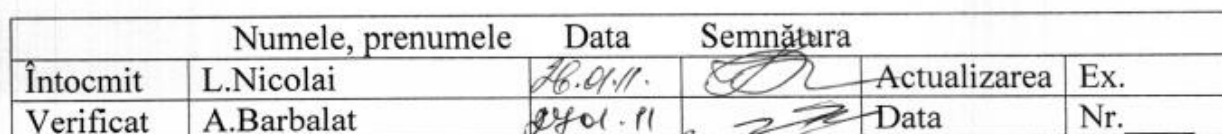 Numele, prenumele Data Semnătura
Întocmit L.Nicolai 26.01.11. Actualizarea Ex.
Verificat A.Barbalat 27 01.11 Data Nr.____